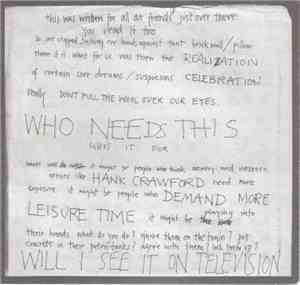 this was written for all our friends just over there
you read it too
so we stopped bashing our heads against that brick wall / pillow
them it is what for us was then the REALIZATION
of certain sour dreams / suspicions CELEBRATION
Really DON'T PULL THE WOOL OVER OUR EYES.
WHO NEEDS THIS
WHO'S IT FOR
it might be people who think, memory and western
actors like HANK CRAWFORD need more
exposure it might be people who DEMAND MORE
LEISURE TIME it might be playing into
their hands what do you do? ignore them on the train? put
concrete in their petrol tanks? agree with them? lock them up?
WILL I SEE IT ON TELEVISION